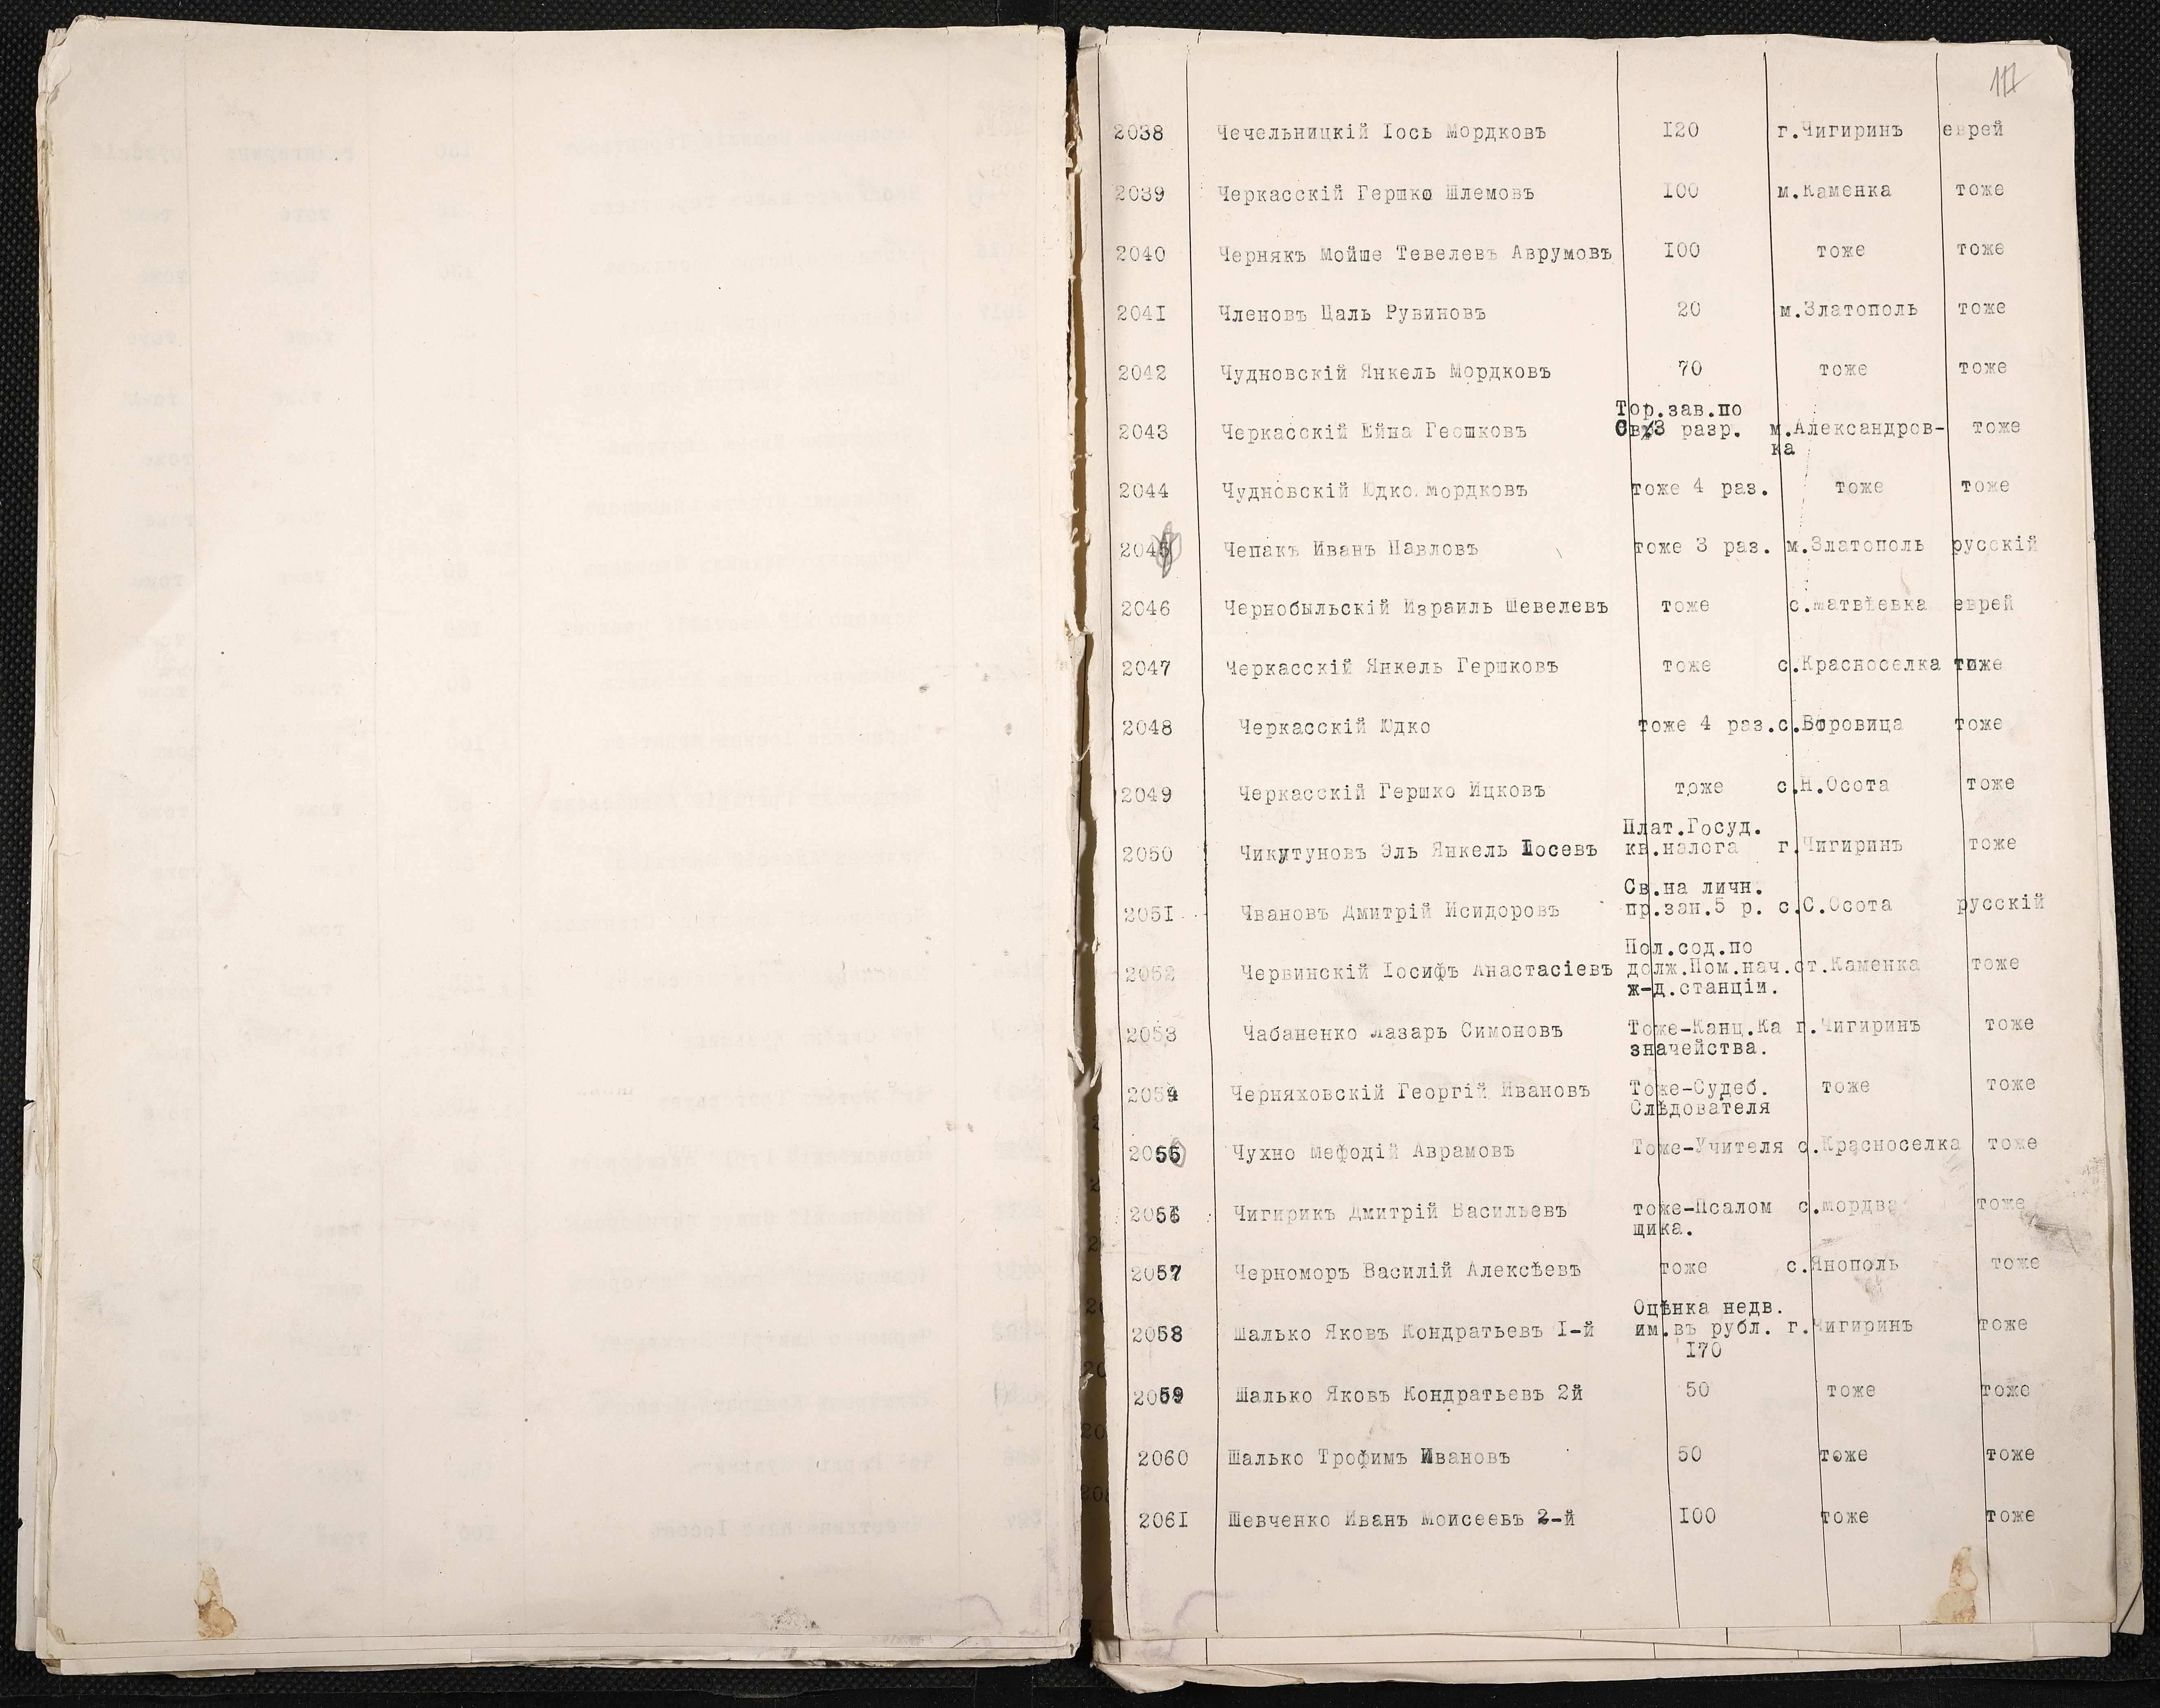 117
2038 Чечельницкій Іось Мордковъ 120 г.Чигиринъ еврей
2039 Черкасскій Гершко Шлемовъ 100 м.Каменка тоже
2040 Чернякъ Мойше Тевелевъ Аврумовъ 100 тоже тоже
2041 Членовъ Цаль Рувиновъ 20 м.Златополь тоже
2042 Чудновскій Янкель Мордковъ 70 тоже тоже
Тор.зав.по
2043 Черкасскій Ейна Геошковъ 3 разр. м.Александров- тоже
ка
2044 Чудновскій Юдко Мордковъ тоже 4 раз. тоже тоже
2045 Чепакъ Иванъ Павловъ тоже 3 раз. м.Златополь русскій
2046 Чернобыльскій Израиль Шевелевъ тоже с.Матвѣевка еврей
2047 Черкасскій Янкель Гершковъ тоже с.Красноселка тоже
2048 Черкасскій Юдко тоже 4 раз. с.Боровица тоже
2049 Черкасскій Гершко Ицковъ тоже с.Н.Осота тоже
Плат.Госуд.
2050 Чикутуновъ Эль Янкель Іосевъ кв.налога г.Чигиринъ тоже
Св.на личн.
2051 Чвановъ Дмитрій Исидоровъ пр.зан.5 р. с.С.Осота русскій
Пол.сод.по
2052 Червинскій Іосифъ Анастасіевъ долж.Пом.нач. ст.Каменка тоже
ж-д.станціи.
2053 Чабаненко Лазарь Симоновъ Тоже-Канц.Ка г.Чигиринъ тоже
значейства.
2054 Черняховскій Георгій Ивановъ Тоже-Судеб. тоже тоже
Слѣдователя
2055 Чухно Мефодій Аврамовъ Тоже-Учителя с.Красноселка тоже
2056 Чигирикъ Дмитрій Васильевъ тоже-Псалом с.Мордва тоже
щика.
2057 Черноморъ Василій Алексѣевъ тоже с.Янополь тоже
Оцѣнка недв.
2058 Шалько Яковъ Кондратьевъ I-й им.въ рубл. г.Чигиринъ тоже
170
2059 Шалько Яковъ Кондратьевъ 2й 50 тоже тоже
2060 Шалько Трофимъ Ивановъ 50 тоже тоже
2061 Шевченко Иванъ Моисеевъ 2-й 100 тоже тоже